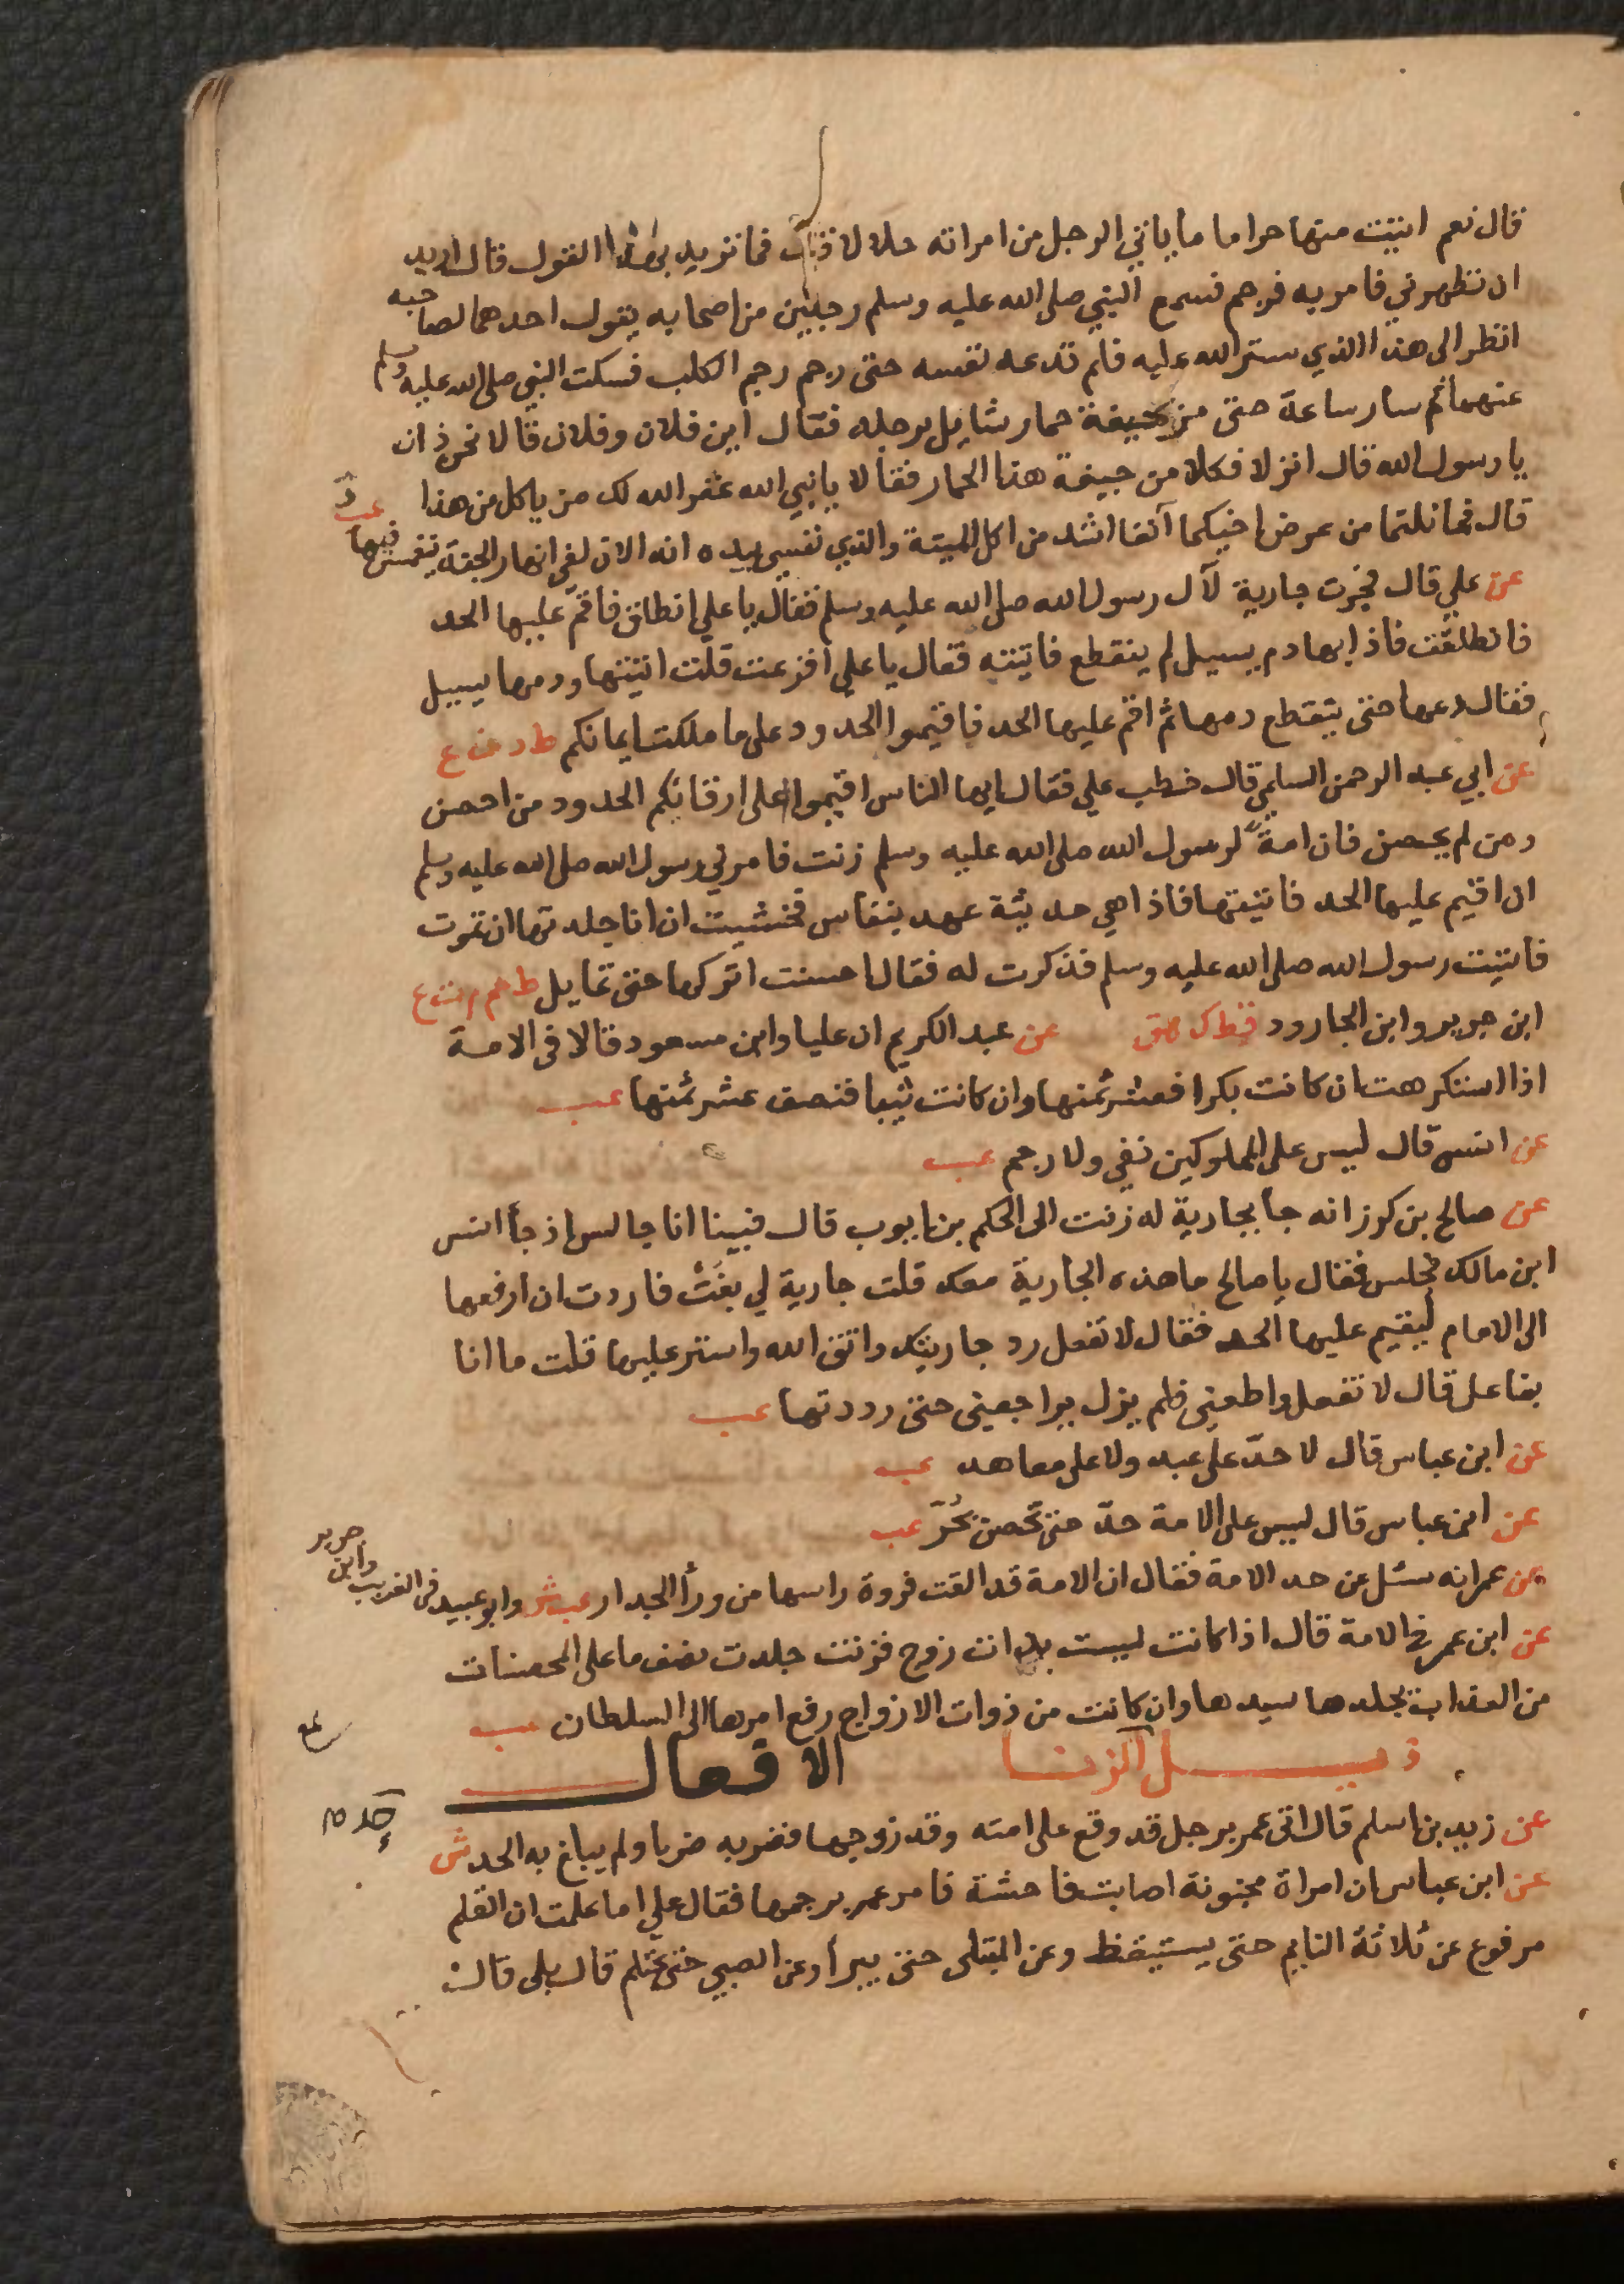 قال نعم اتيت منها حراما ما ياتي الرجل من امراته حلالا قال فما تريد بهذا القول قال اريد
ان تطهرني فامر به فرجم فسمع النبي صلى الله عليه وسلم رجلين من اصحابه يقول احدهما لصاحبه
انظر الى هذا الذي ستر الله عليه فلم تدعه نفسه حتى رجم رجم الكلب فسكت النبي صلى الله عليه وسلم
عنهما ثم سار ساعة حتى مر بجيفة حمار شايل برجله فقال اين فلان وفلان قالا نحن ذان
يا رسول الله قال انزلا فكلا من جيفة هذا الحمار فقالا يا نبي الله غفر الله لك من ياكل من هذا
قال فما نلتما من عرض اخيكما آنفا اشد من اكل الميتة والذي نفسي بيده انه الان لفي انهار الجنة ينغمس فيها عب د
عن علي قال فجرت جارية لآل رسول الله صلى الله عليه وسلم فقال يا علي انطلق فاقم عليها الحد
فانطلقت فاذا بها دم يسيل لم ينقطع فاتيته فقال يا علي افزعت قلت اتيتها ودمها يسيل
فقال دعها حتى ينقطع دمها ثم اقم عليها الحد فاقيموا الحدود على ما ملكت ايمانكم ط د ن ع
عن ابي عبد الرحمن السلمي قال خطب علي فقال ايها الناس اقيموا على ارقائكم الحدود من احصن
ومن لم يحصن فان امة لرسول الله صلى الله عليه وسلم زنت فامرني رسول الله صلى الله عليه وسلم
ان اقيم عليها الحد فاتيتها فاذا هي حديثة عهد بنفاس فخشيت ان انا جلدتها ان تموت
فاتيت رسول الله صلى الله عليه وسلم فذكرت له فقال احسنت اتركها حتى تماثل ط حم م ت ع
ابن جرير وابن الجارود قط ك هق عن عبد الكريم ان عليا وابن مسعود قالا في الامة
اذا استكرهت ان كانت بكرا فعشر ثمنها وان كانت ثيبا فنصف عشر ثمنها عب
عن انس قال ليس على المملوكين نفي ولا رجم عب
عن صالح بن كرز انه جا بجارية له زنت الى الحكم بن ايوب قال فبينا انا جالس اذ جا انس
ابن مالك فجلس فقال يا صالح ما هذه الجارية معك قلت جارية لي بغت فاردت ان ارفعها
الى الامام ليقيم عليها الحد فقال لا تفعل رد جاريتك واتق الله واستر عليها قلت ما انا
بفاعل قال لا تفعل واطعني فلم يزل يراجعني حتى رددتها عب
عن ابن عباس قال لا حدّ على عبد ولا على معاهد عب
عن ابن عباس قال ليس على الامة حدّ حتى تحصن بحُرّ عب
عن عمر انه سئل عن حد الامة فقال ان الامة قد القت فروة راسها من ورأ الجدار عب ش وابو عبيد في الغريب وابن جرير
عن ابن عمر في الامة قال اذا كانت ليست بذات زوج فزنت جلدت نصف ما على المحصنات
من العذاب يجلدها سيدها وان كانت من ذوات الازواج رفع امرها الى السلطان عب
ذيل الزنا الافعال
عن زيد بن اسلم قال اتي عمر برجل قد وقع على امته وقد زوجها فضربه ضربا ولم يبلغ به الحد ش
عن ابن عباس ان امراة مجنونة اصابت فاحشة فامر عمر برجمها فقال علي اما علمت ان القلم
مرفوع عن ثلاثة النايم حتى يستيقظ وعن المبتلى حتى يبرأ وعن الصبي حتى يحتلم قال بلى قال